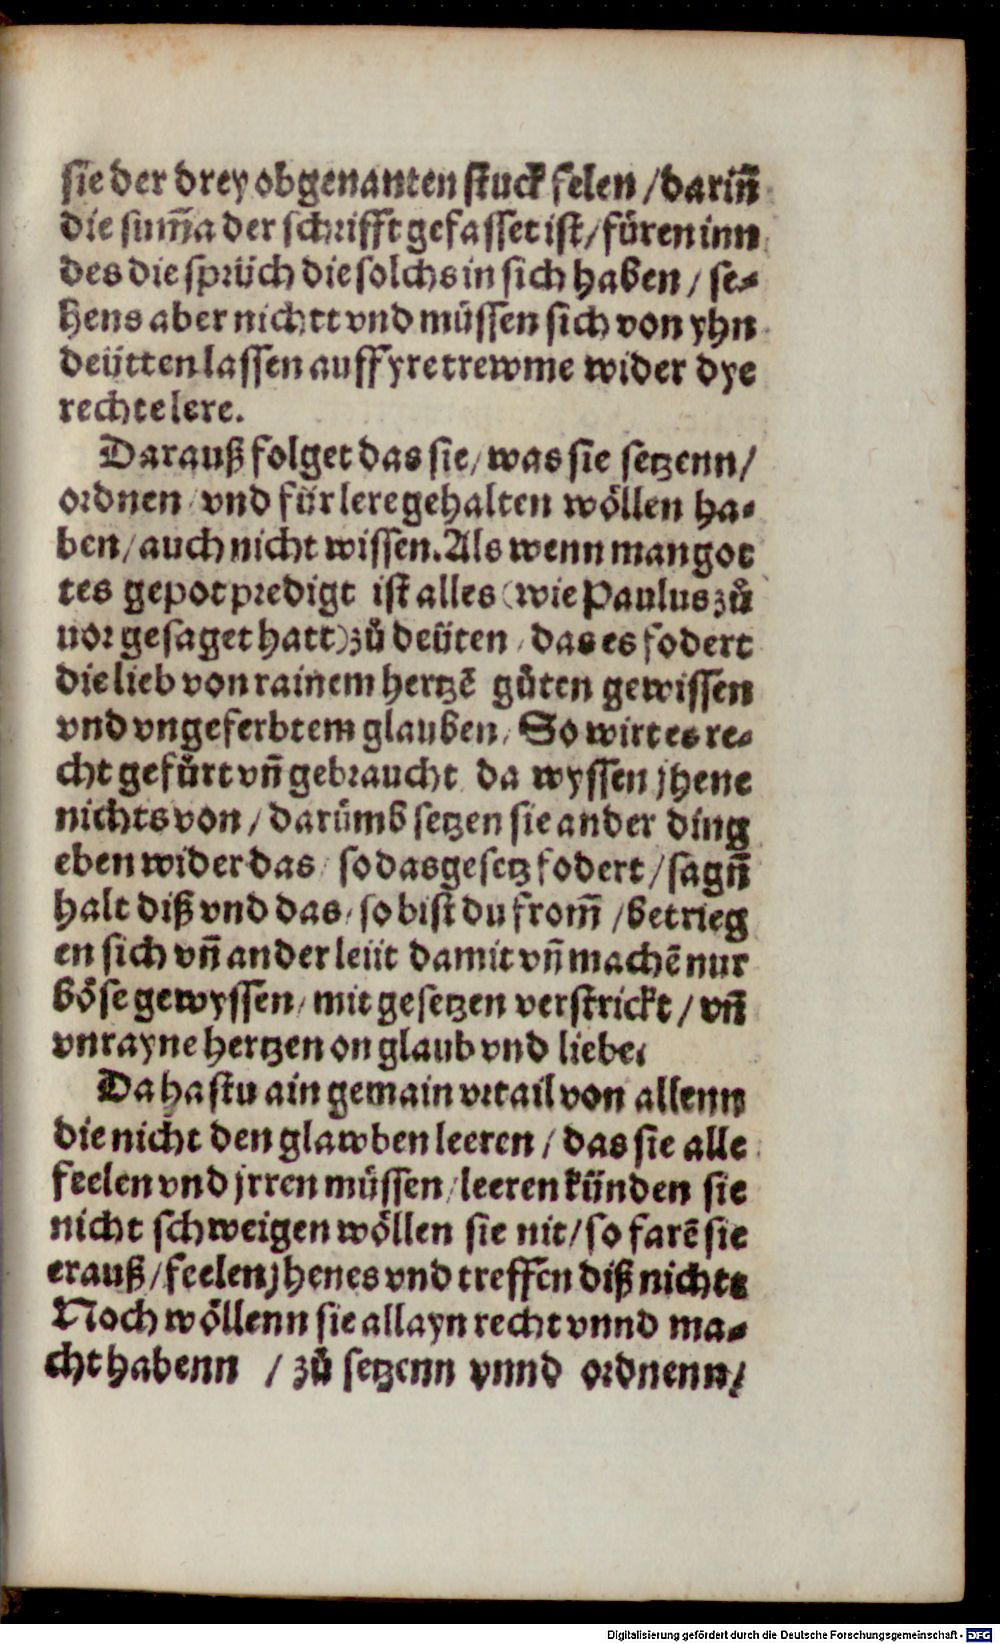 sie der drey obgenanten stuck felen / darin̄
die sum̄a der schrifft gefasset ist / füren inn
des die sprüch die solchs in sich haben / se-
hens aber nichtt vnd müssen sich von yhn
deütten lassen auff yre trewme wider dye
rechte lere.
Darauß folget das sie / was sie setzenn /
ordnen / vnd für lere gehalten wöllen ha-
ben / auch nicht wissen. Als wenn man got
tes gepot predigt ist alles (wie Paulus zů
uor gesaget hatt) zů deüten / das es fodert
die lieb von rainem hertzē gůten gewissen
vnd vngeferbtem glauben / So wirt es re-
cht gefůrt vn̄ gebraucht da wyssen jhene
nichts von / darümb setzen sie ander ding
eben wider das / so das gesetz fodert / sagn̄
halt diß vnd das / so bist du from̄ / betrieg
en sich vn̄ ander leüt damit vn̄ machē nur
böse gewyssen / mit gesetzen verstrickt / vn̄
vnrayne hertzen on glaub vnd liebe.
Da hastu ain gemain vrtail von allenn
die nicht den glawben leeren / das sie alle
feelen vnd jrren müssen / leeren künden sie
nicht schweigen wöllen sie nit / so farē sie
erauß / feelen jhenes vnd treffen diß nichts
Noch wöllenn sie allayn recht vnnd ma-
cht habenn / zů setzenn vnnd ordnenn /
Digitalisierung gefördert durch die Deutsche Forschungsgemeinschaft - DFG